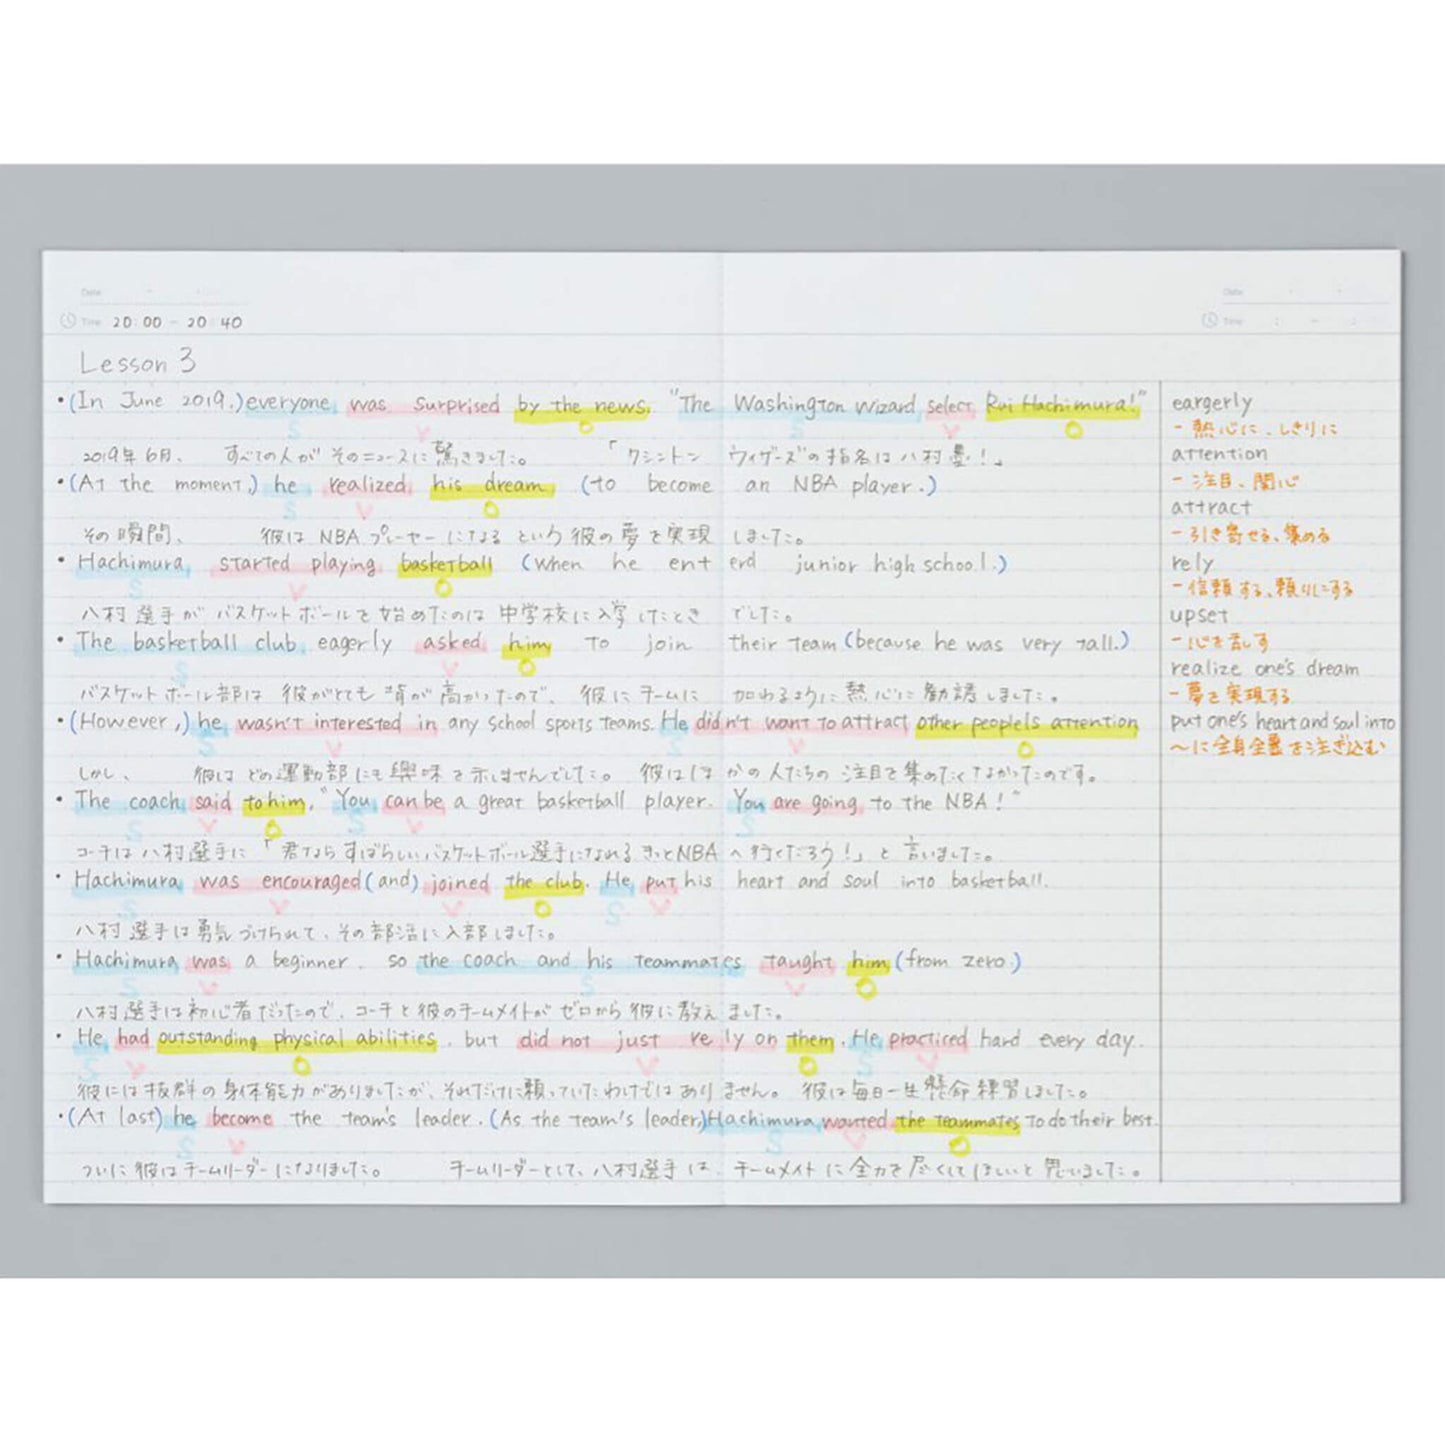 Date
Time 20:00 - 20:40
Date
Time
Lesson 3
・(In June 2019,) everyone was surprised by the news. "The Washington Wizard select Rui Hachimura!"
S V O S V O
2019年6月、 すべての人が そのニュースに驚きました。 「ワシントン ウィザーズ"の指名は八村塁!」
・(At the moment,) he realized his dream (to become an NBA player.)
S V O
その瞬間、 彼は NBA プレーヤーになる という 彼の夢を実現しました。
・Hachimura started playing basketball (when he enterd junior high school.)
S V O
八村選手が バスケットボールを始めたのは 中学校に入学したとき でした。
・The basketball club eagerly asked him to join their team (because he was very tall.)
S V O
バスケットボール部は 彼がとても背が高かったので、 彼にチームに 加わるように熱心に勧誘しました。
・(However,) he wasn't interested in any school sports teams. He didn't want to attract other people's attention
S V S V O
しかし、 彼は どの運動部にも興味を示しませんでした。 彼はほかの人たちの 注目を集めたくなかったのです。
・The coach said to him, "You can be a great basketball player. You are going to the NBA!"
S V O S V S V
コーチは八村選手に 「君ならすばらしいバスケットボール選手になれる きっとNBA へ行くだろう!」と言いました。
・Hachimura was encouraged (and) joined the club. He put his heart and soul into basketball.
S V V O S V
八村選手は勇気づけられて、その部活に入部しました。
・Hachimura was a beginner. so the coach and his teammates taught him (from zero.)
S V S V O
八村選手は初心者だったので、コーチと彼のチームメイトが ゼロから彼に教えました。
・He had outstanding physical abilities, but did not just rely on them. He practiced hard every day.
S V O V O S V
彼には抜群の身体能力がありましたが、それだけに頼っていたわけではありません。 彼は毎日一生懸命練習しました。
・(At last) he become the team's leader. (As the team's leader,) Hachimura wanted the teammates to do their best.
S V S V O
ついに彼はチームリーダーになりました。 チームリーダーとして、八村選手は、チームメイトに全力を尽くしてほしいと思いました。
eargerly
- 熱心に、しきりに
attention
- 注目、関心
attract
- 引き寄せる、集める
rely
- 信頼する、頼りにする
upset
- 心を乱す
realize one's dream
- 夢を実現する
put one's heart and soul into
〜に全身全霊を注ぎ込む